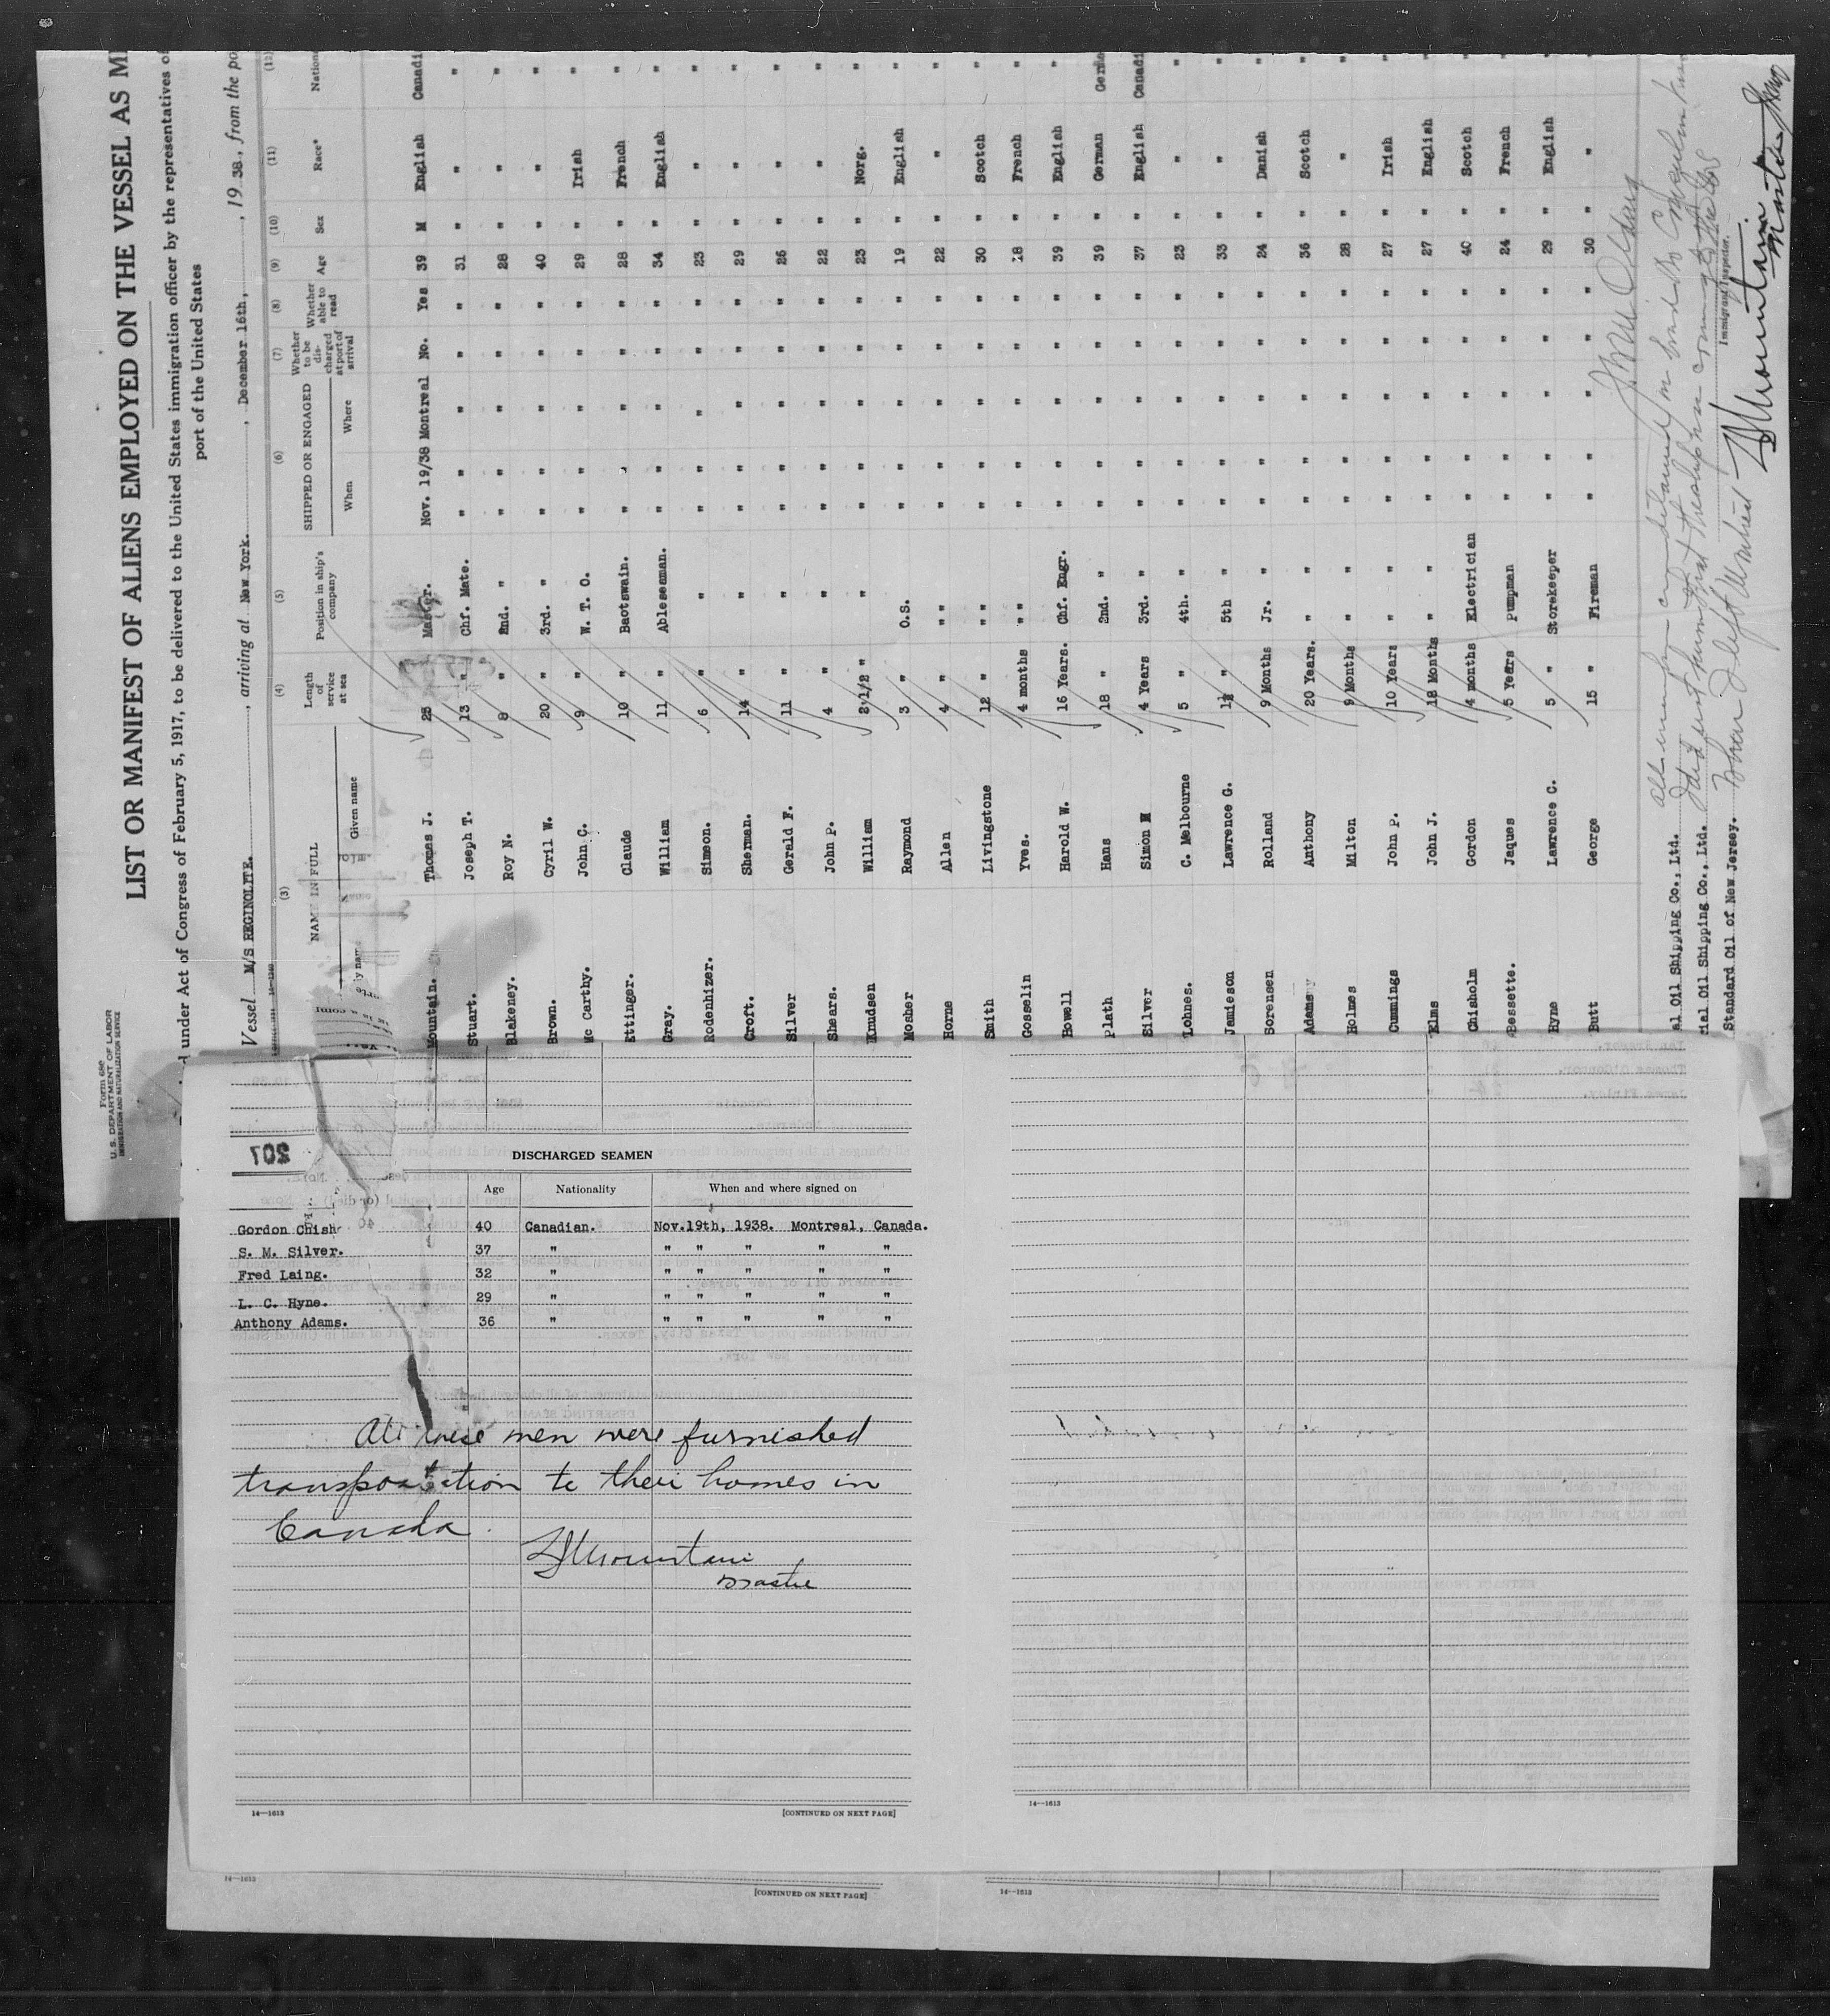 Form 689
U. S. DEPARTMENT OF LABOR
IMMIGRATION AND NATURALIZATION SERVICE
LIST OR MANIFEST OF ALIENS EMPLOYED ON THE VESSEL AS M
d under Act of Congress of February 5, 1917, to be delivered to the United States immigration officer by the representatives of
port of the United States
Vessel M/S REGINOLITE. , arriving at New York. , December 16th, , 19 38, from the po
(3) (4) (5) (6) (7) (8) (9) (10) (11) (12)
NAME IN FULL Length of service at sea Position in ship's company SHIPPED OR ENGAGED Whether to be discharged at port of arrival Whether able to read Age Sex Race* Nation
Given name When Where
Mountain. Thomas J. 25 " Master. Nov. 19/38 Montreal No. Yes 39 M English Canadi
Stuart. Joseph T. 13 " Chf. Mate. " " " " " 31 " " "
Blakeney. Roy N. 8 " 2nd. " " " " " " 28 " " "
Brown. Cyril W. 20 " 3rd. " " " " " " 40 " " "
Mc Carthy. John C. 9 " W. T. O. " " " " " 29 " Irish "
Ettinger. Claude 10 " Baotswain. " " " " " 28 " French "
Gray. William 11 " Ableseaman. " " " " " 34 " English "
Rodenhizer. Simeon. 6 " " " " " " " 23 " " "
Croft. Sherman. 14 " " " " " " " 29 " " "
Silver Gerald F. 11 " " " " " " " 26 " " "
Shears. John P. 4 " " " " " " " 22 " " "
Knudsen William 2 1/2 " " " " " " " 23 " Norg. "
Mosher Raymond 3 " O.S. " " " " " 19 " English "
Horne Allen 4 " " " " " " " " 22 " " "
Smith Livingstone 12 " " " " " " " " 30 " Scotch "
Gosselin Yves. 4 months " " " " " " " 18 " French "
Bowell Harold W. 16 Years. Chf. Engr. " " " " " 39 " English "
Plath Hans 18 " 2nd. " " " " " " 39 " German Germa
Silver Simon M 4 Years 3rd. " " " " " " 37 " English Canadi
Lohnes. C. Melbourne 5 " 4th. " " " " " " 23 " " "
Jamieson Lawrence G. 1½ " 5th " " " " " " 33 " " "
Sorensen Rolland 9 Months Jr. " " " " " " 24 " Danish "
Adams Anthony 20 Years. " " " " " " 36 " Scotch "
Holmes Milton 9 Months " " " " " " 28 " " "
Cummings John P. 10 Years " " " " " " 27 " Irish "
Elms John J. 18 Months " " " " " " 27 " English "
Chisholm Gordon 4 months Electrician " " " " " 40 " Scotch "
Bessette. Jaques 5 Years Pumpman " " " " " 24 " French "
Hyne Lawrence C. 5 " Storekeeper " " " " " 29 " English "
Butt George 15 " Fireman " " " " " 30 " " "
al Oil Shipping Co., Ltd.
cial Oil Shipping Co., Ltd.
Standard Oil of New Jersey.
Immigrant Inspector.
Mountain
Master
207
DISCHARGED SEAMEN
Age Nationality When and where signed on
Gordon Chish 40 Canadian. Nov.19th, 1938. Montreal, Canada.
S. M. Silver. 37 " " " " " "
Fred Laing. 32 " " " " " "
L. C. Hyne. 29 " " " " " "
Anthony Adams. 36 " " " " " "
All these men were furnished
transportation to their homes in
Canada.
TJMountain
Master
14—1613 [CONTINUED ON NEXT PAGE] 14—1613
14—1613 [CONTINUED ON NEXT PAGE] 14—1613